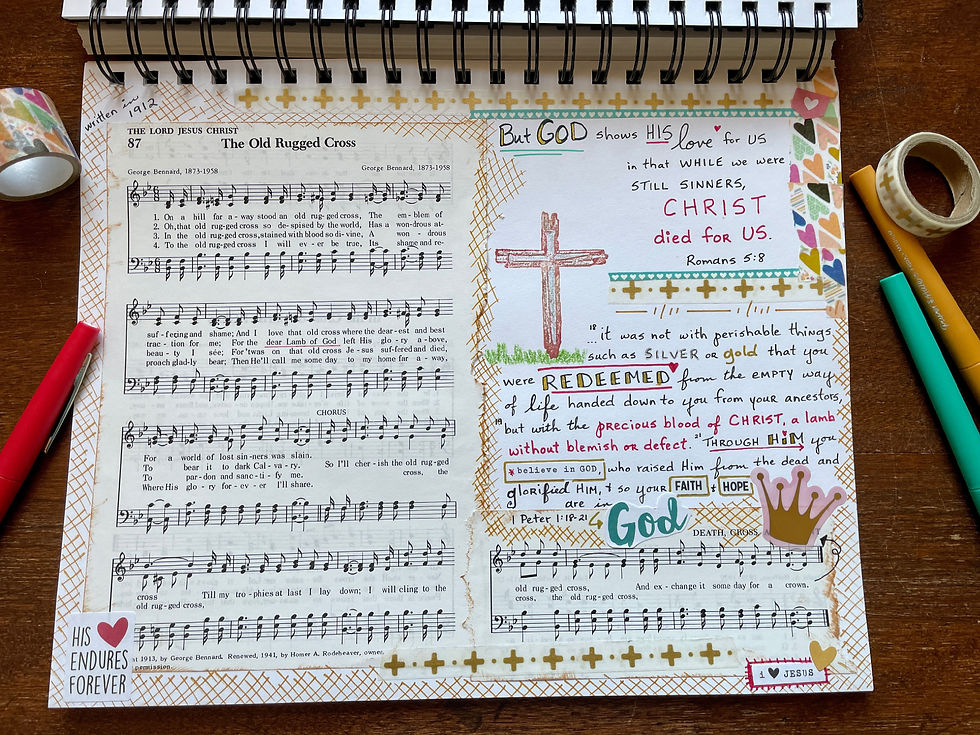 written in
1912
THE LORD JESUS CHRIST
87
The Old Rugged Cross
George Bennard, 1873-1958
George Bennard, 1873-1958
1. On a hill far a - way stood an old rug-ged cross, The em - blem of
2. Oh, that old rug-ged cross so de-spised by the world, Has a won-drous at-
3. In the old rug-ged cross, stained with blood so di-vine, A won - drous
4. To the old rug-ged cross I will ev - er be true, Its shame and re-
suf-fering and shame; And I love that old cross where the dear-est and best
trac - tion for me; For the dear Lamb of God left His glo - ry a-bove,
beau - ty I see; For 'twas on that old cross Je - sus suf-fered and died,
proach glad-ly bear; Then He'll call me some day to my home far a - way,
CHORUS
For a world of lost sin-ners was slain.
To bear it to dark Cal - va - ry.
To par - don and sanc - ti - fy me.
Where His glo - ry for - ev - er I'll share.
So I'll cher - ish the old rug-ged
cross, the
cross
old rug-ged cross,
Till my tro - phies at last I lay down; I will cling to the
st 1913, by George Bennard. Renewed, 1941, by Homer A. Rodeheaver, owner.
permission.
HIS
ENDURES
FOREVER
But GOD shows HIS love for US
in that WHILE we were
STILL SINNERS,
CHRIST
died for US.
Romans 5:8
18 ...it was not with perishable things
such as SILVER or gold that you
were REDEEMED from the EMPTY way
of life handed down to you from your ancestors,
19 but with the precious blood of CHRIST, a lamb
without blemish or defect. 21 THROUGH HiM you
* believe in GOD, who raised Him from the dead and
glorified HIM, & so your FAITH & HOPE
are in
1 Peter 1:18-21
God
DEATH, CROSS
old rug-ged cross, And ex - change it some day for a crown.
cross, the old rug-ged cross,
i JESUS